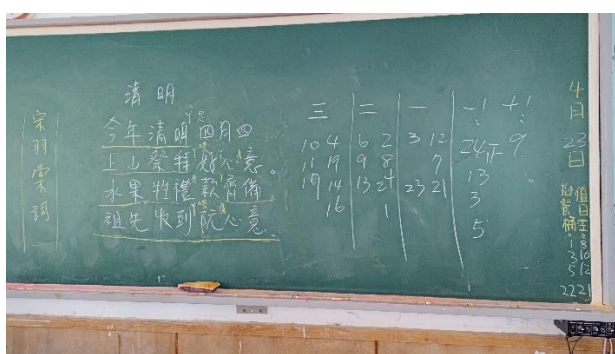 清明
今年清明四月四
上山祭拜好心意。
水果牲禮款齊備
祖先收到阮心意。
宋羽棠詞
三 二 一 -1 +1
10 4 6 2 3 12 24正 9
11 19 9 8 7 13
14 13 23 21 3
16 1 5
4月23日
值日生
3 10
5 12
22 21